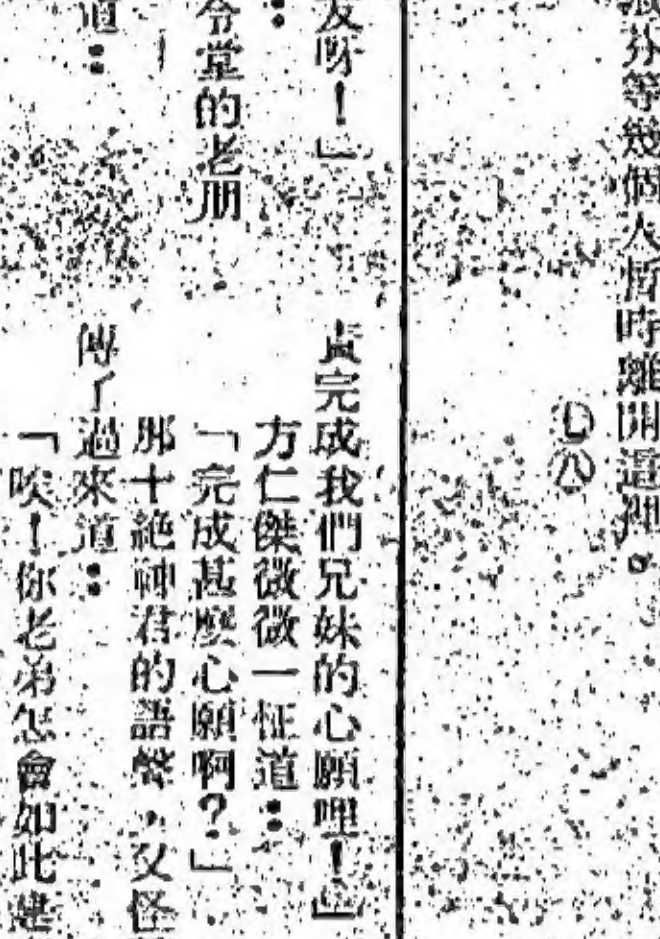 芬等幾個人暫時離開這裡。
七八
友呀!」
令堂的老朋
道:
責完成我們兄妹的心願哩!」
方仁傑微微一怔道:
「完成甚麼心願啊?」
那十絕神君的語聲,又怪
傳了過來道:
「唉!你老弟怎會如此健